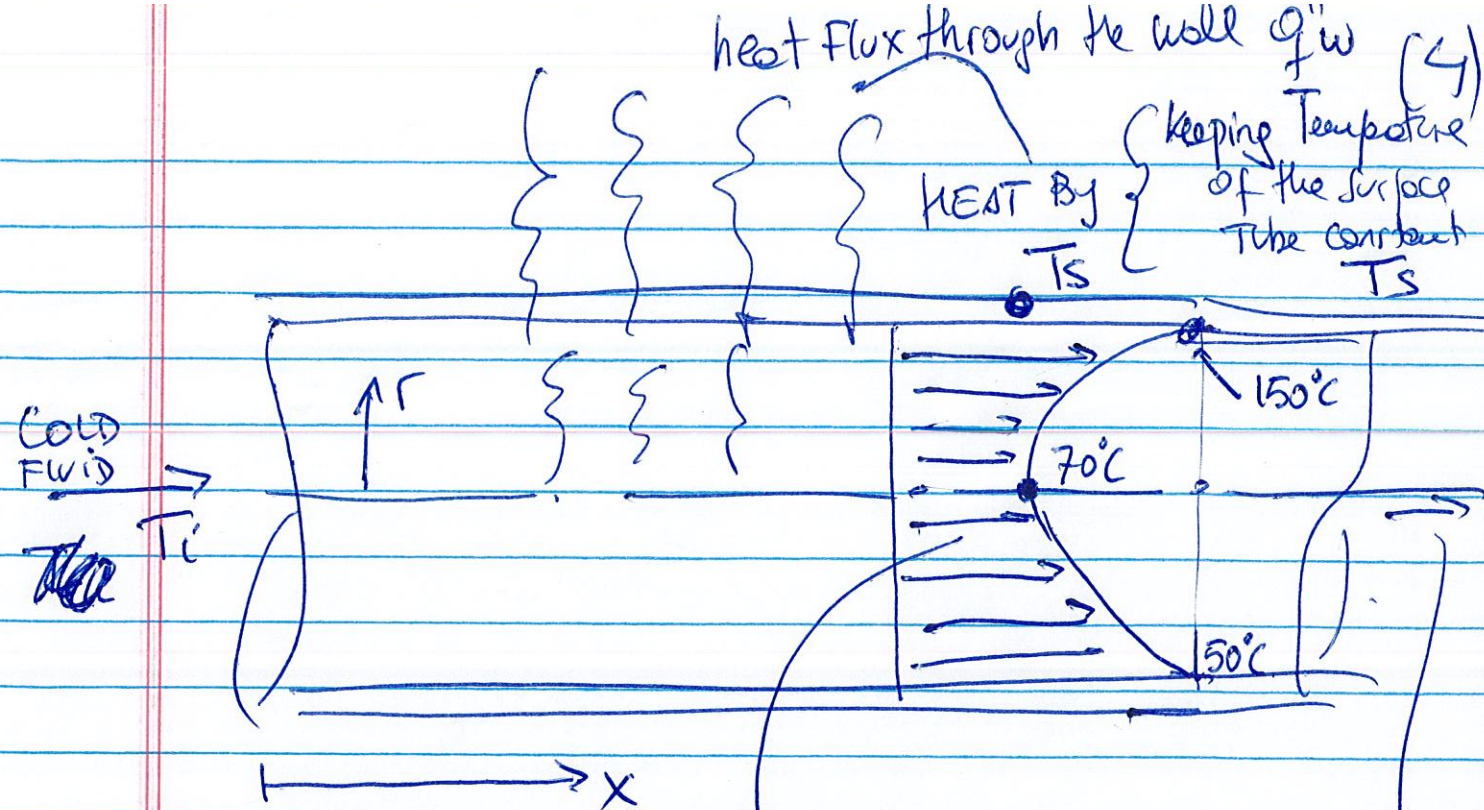 heat Flux through the wall q"w
(4)
HEAT By
Keeping Tempature
of the surface
Tube constant
Ts
Ts
r
150°C
COLD
FLUID
Ti
70°C
50°C
X